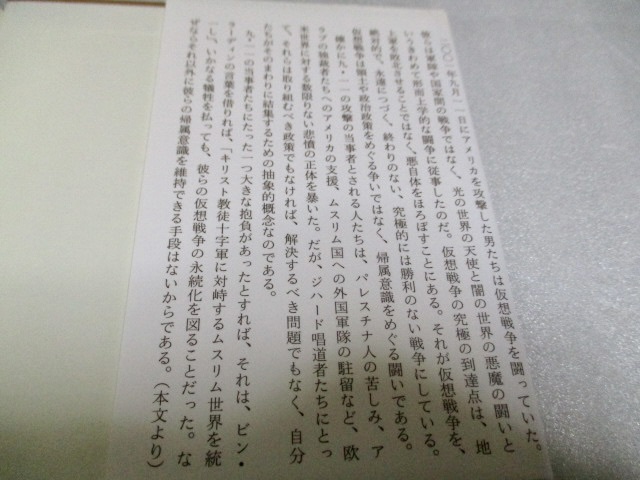 二〇〇一年九月一一日にアメリカを攻撃した男たちは仮想戦争を闘っていた。
彼らは軍隊や国家間の戦争ではなく、光の世界の天使と闇の世界の悪魔の闘いと
いうきわめて形而上学的な闘争に従事したのだ。仮想戦争の究極の到達点は、地
上軍を敗北させることではなく、悪自体をほろぼすことにある。それが仮想戦争を、
絶対的で、永遠につづく、終わりのない、究極的には勝利のない戦争にしている。
仮想戦争は領土や政治政策をめぐる争いではなく、帰属意識をめぐる闘いである。
確かに九・一一の攻撃の当事者とされる人たちは、パレスチナ人の苦しみ、ア
ラブの独裁者たちへのアメリカの支援、ムスリム国への外国軍隊の駐留など、欧
米世界に対する数限りない悲憤の正体を暴いた。だが、ジハード唱道者たちにとっ
て、それらは取り組むべき政策でもなければ、解決するべき問題でもなく、自分
たちがそのまわりに結集するための抽象的概念なのである。
九・一一の当事者たちにたった一つ大きな抱負があったとすれば、それは、ビン・
ラーディンの言葉を借りれば、「キリスト教徒十字軍に対峙するムスリム世界を統
一し」、いかなる犠牲を払っても、彼らの仮想戦争の永続化を図ることだった。な
ぜならそれ以外に彼らの帰属意識を維持できる手段はないからである。（本文より）